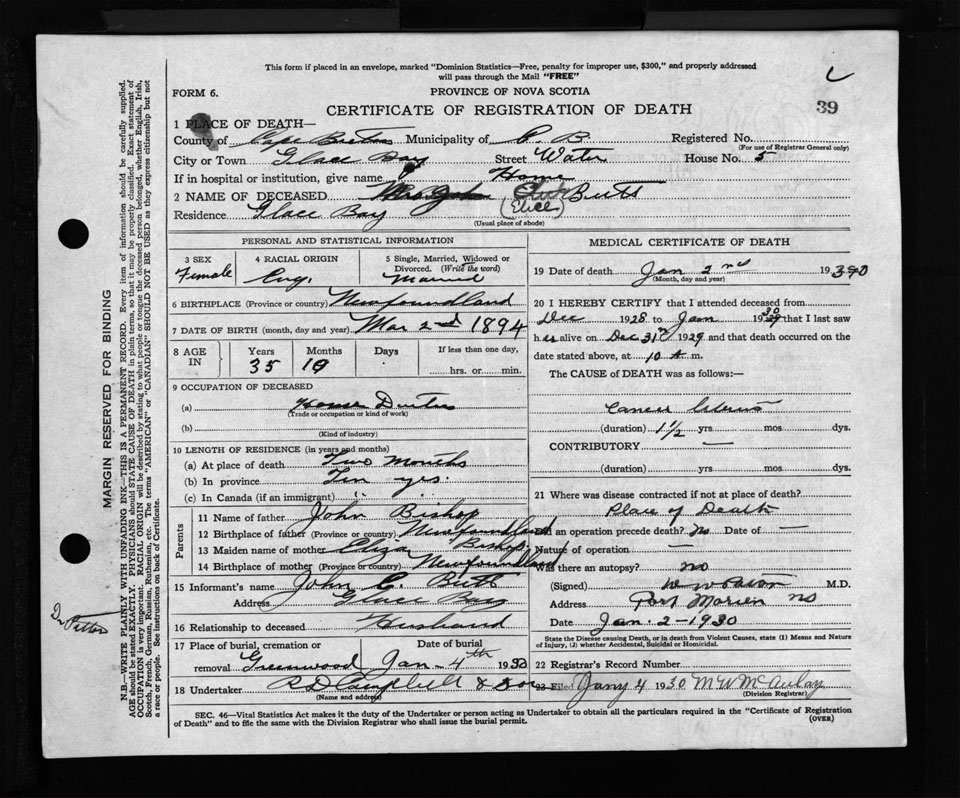 This form if placed in an envelope, marked "Dominion Statistics—Free, penalty for improper use, $300," and properly addressed
will pass through the Mail "FREE"
FORM 6.
PROVINCE OF NOVA SCOTIA
CERTIFICATE OF REGISTRATION OF DEATH
39
1 PLACE OF DEATH—
County of Cape Breton Municipality of C. B. Registered No.
(For use of Registrar General only)
City or Town Glace Bay Street Water House No. 5
If in hospital or institution, give name Home
2 NAME OF DECEASED Mrs John Butts
(Elice)
Residence Glace Bay
(Usual place of abode)
PERSONAL AND STATISTICAL INFORMATION
3 SEX Female
4 RACIAL ORIGIN Eng.
5 Single, Married, Widowed or
Divorced. (Write the word)
Married
6 BIRTHPLACE (Province or country) Newfoundland
7 DATE OF BIRTH (month, day and year) Mar 2nd 1894
8 AGE IN Years 35 Months 10 Days If less than one day,
hrs. or min.
9 OCCUPATION OF DECEASED
(a) House Duties
(Trade or occupation or kind of work)
(b)
(Kind of industry)
10 LENGTH OF RESIDENCE (in years and months)
(a) At place of death Two months
(b) In province Ten yrs.
(c) In Canada (if an immigrant) " "
Parents
11 Name of father John Bishop
12 Birthplace of father (Province or country) Newfoundland
13 Maiden name of mother Eliza Bishop
14 Birthplace of mother (Province or country) Newfoundland
15 Informant's name John C. Butts
Address Glace Bay
16 Relationship to deceased Husband
17 Place of burial, cremation or Date of burial
removal Greenwood Jan - 4th 1930
18 Undertaker R D Campbell & Son
(Name and address)
MEDICAL CERTIFICATE OF DEATH
19 Date of death Jan 2nd 1930
(Month, day and year)
20 I HEREBY CERTIFY that I attended deceased from
Dec 1928 to Jan 1930 that I last saw
her alive on Dec 31st 1929 and that death occurred on the
date stated above, at 10 A m.
The CAUSE of DEATH was as follows:—
Cancer Uterus
(duration) 1½ yrs mos dys.
CONTRIBUTORY —
(duration) yrs mos dys.
21 Where was disease contracted if not at place of death?
Place of Death
Did an operation precede death? no Date of —
Nature of operation —
Was there an autopsy? no
(Signed) M.D.
Address Port Morien NS
Date Jan. 2 - 1930
State the Disease causing Death, or in death from Violent Causes, state (1) Means and Nature
of Injury, (2) whether Accidental, Suicidal or Homicidal.
22 Registrar's Record Number
23 Filed Jany 4 1930 M W McAulay
(Division Registrar)
SEC. 46—Vital Statistics Act makes it the duty of the Undertaker or person acting as Undertaker to obtain all the particulars required in the "Certificate of Registration
of Death" and to file the same with the Division Registrar who shall issue the burial permit.
(OVER)
MARGIN RESERVED FOR BINDING
N.B.—WRITE PLAINLY WITH UNFADING INK—THIS IS A PERMANENT RECORD. Every item of information should be carefully supplied.
AGE should be stated EXACTLY. PHYSICIANS should STATE CAUSE OF DEATH in plain terms, so that it may be properly classified. Exact statement of
OCCUPATION is very important. RACIAL ORIGIN will be described by stating to what people or tongue the deceased person belonged, whether English, Irish,
Scotch, French, German, Russian, Ruthenian, etc. The terms "AMERICAN" or "CANADIAN" SHOULD NOT BE USED as they express citizenship but not
a race or people. See instructions on back of Certificate.